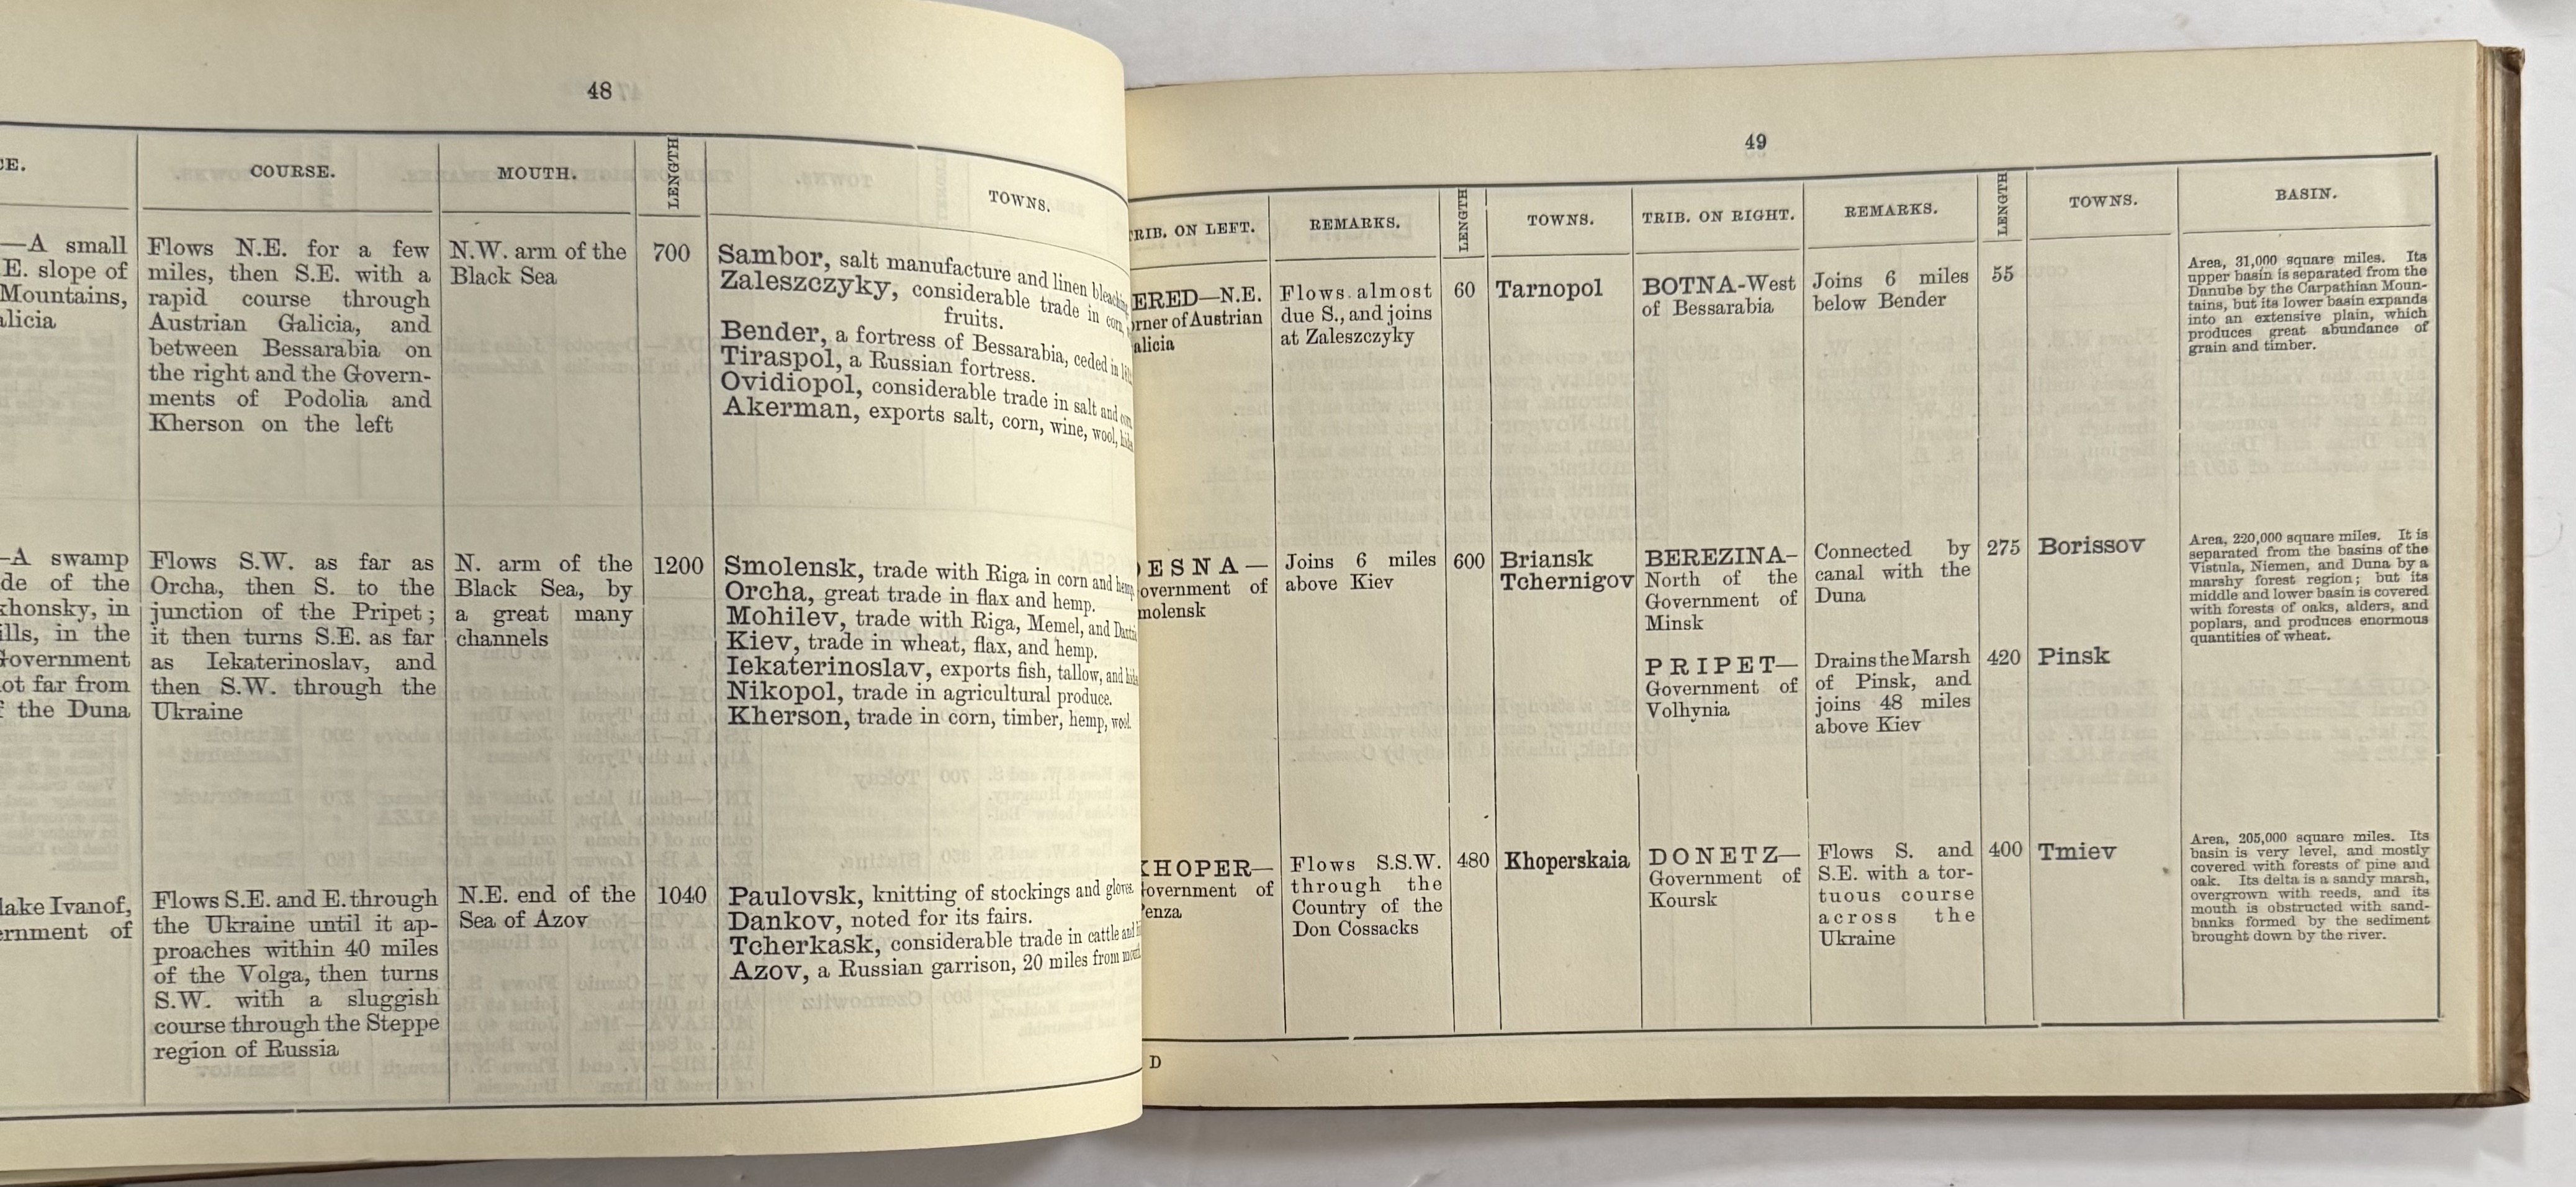 48
CE.
COURSE.
MOUTH.
LENGTH
TOWNS.
—A small
E. slope of
Mountains,
alicia
Flows N.E. for a few
miles, then S.E. with a
rapid course through
Austrian Galicia, and
between Bessarabia on
the right and the Govern-
ments of Podolia and
Kherson on the left
N.W. arm of the
Black Sea
700
Sambor, salt manufacture and linen bleaching
Zaleszczyky, considerable trade in corn,
fruits.
Bender, a fortress of Bessarabia, ceded in
Tiraspol, a Russian fortress.
Ovidiopol, considerable trade in salt and corn
Akerman, exports salt, corn, wine, wool,
—A swamp
de of the
khonsky, in
ills, in the
Government
ot far from
f the Duna
Flows S.W. as far as
Orcha, then S. to the
junction of the Pripet;
it then turns S.E. as far
as Iekaterinoslav, and
then S.W. through the
Ukraine
N. arm of the
Black Sea, by
a great many
channels
1200
Smolensk, trade with Riga in corn and hemp
Orcha, great trade in flax and hemp.
Mohilev, trade with Riga, Memel, and
Kiev, trade in wheat, flax, and hemp.
Iekaterinoslav, exports fish, tallow, and
Nikopol, trade in agricultural produce.
Kherson, trade in corn, timber, hemp, wool.
lake Ivanof,
ernment of
Flows S.E. and E. through
the Ukraine until it ap-
proaches within 40 miles
of the Volga, then turns
S.W. with a sluggish
course through the Steppe
region of Russia
N.E. end of the
Sea of Azov
1040
Paulovsk, knitting of stockings and gloves.
Dankov, noted for its fairs.
Tcherkask, considerable trade in cattle and
Azov, a Russian garrison, 20 miles from
49
RIB. ON LEFT.
REMARKS.
LENGTH
TOWNS.
TRIB. ON RIGHT.
REMARKS.
LENGTH
TOWNS.
BASIN.
ERED—N.E.
orner of Austrian
alicia
Flows almost
due S., and joins
at Zaleszczyky
60
Tarnopol
BOTNA-West
of Bessarabia
Joins 6 miles
below Bender
55
Area, 31,000 square miles. Its
upper basin is separated from the
Danube by the Carpathian Moun-
tains, but its lower basin expands
into an extensive plain, which
produces great abundance of
grain and timber.
ESNA—
overnment of
molensk
Joins 6 miles
above Kiev
600
Briansk
Tchernigov
BEREZINA-
North of the
Government of
Minsk
Connected by
canal with the
Duna
275
Borissov
PRIPET—
Government of
Volhynia
Drains the Marsh
of Pinsk, and
joins 48 miles
above Kiev
420
Pinsk
Area, 220,000 square miles. It is
separated from the basins of the
Vistula, Niemen, and Duna by a
marshy forest region; but its
middle and lower basin is covered
with forests of oaks, alders, and
poplars, and produces enormous
quantities of wheat.
KHOPER—
overnment of
enza
Flows S.S.W.
through the
Country of the
Don Cossacks
480
Khoperskaia
DONETZ—
Government of
Koursk
Flows S. and
S.E. with a tor-
tuous course
across the
Ukraine
400
Tmiev
Area, 205,000 square miles. Its
basin is very level, and mostly
covered with forests of pine and
oak. Its delta is a sandy marsh,
overgrown with reeds, and its
mouth is obstructed with sand-
banks formed by the sediment
brought down by the river.
D